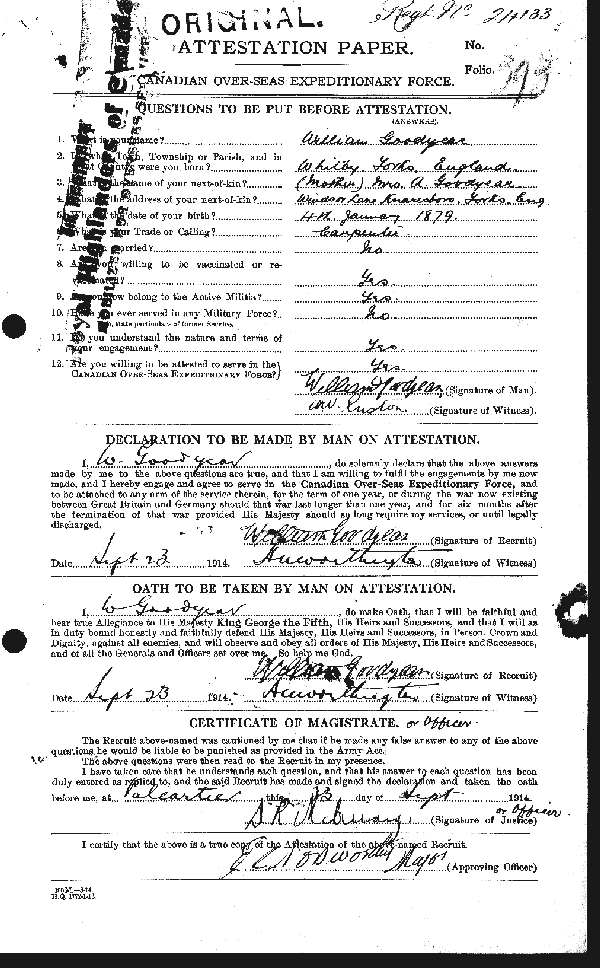 ORIGINAL.
Regt. No 24133
ATTESTATION PAPER.
No.
Folio. 393
CANADIAN OVER-SEAS EXPEDITIONARY FORCE.
QUESTIONS TO BE PUT BEFORE ATTESTATION.
(ANSWERS).
1. What is your name? William Goodyear
2. In what Town, Township or Parish, and in
what Country were you born? Whitby Yorks. England
3. What is the name of your next-of-kin? (Mother) Mrs. A Goodyear
4. What is the address of your next-of-kin? Windsor Lane Knaresboro. Yorks. Eng
5. What is the date of your birth? 4th January 1879
6. What is your Trade or Calling? Carpenter
7. Are you married? No
8. Are you willing to be vaccinated or re-
vaccinated? Yes
9. Do you now belong to the Active Militia? Yes.
10. Have you ever served in any Military Force? No
If so, state particulars of former Service.
11. Do you understand the nature and terms of
your engagement? Yes
12. Are you willing to be attested to serve in the
CANADIAN OVER-SEAS EXPEDITIONARY FORCE? Yes.
William Goodyear (Signature of Man).
(Signature of Witness).
DECLARATION TO BE MADE BY MAN ON ATTESTATION.
I, W Goodyear, do solemnly declare that the above answers
made by me to the above questions are true, and that I am willing to fulfil the engagements by me now
made, and I hereby engage and agree to serve in the Canadian Over-Seas Expeditionary Force, and
to be attached to any arm of the service therein, for the term of one year, or during the war now existing
between Great Britain and Germany should that war last longer than one year, and for six months after
the termination of that war provided His Majesty should so long require my services, or until legally
discharged.
William Goodyear (Signature of Recruit)
Date Sept 23 1914. (Signature of Witness)
OATH TO BE TAKEN BY MAN ON ATTESTATION.
I, W Goodyear, do make Oath, that I will be faithful and
bear true Allegiance to His Majesty King George the Fifth, His Heirs and Successors, and that I will as
in duty bound honestly and faithfully defend His Majesty, His Heirs and Successors, in Person, Crown and
Dignity, against all enemies, and will observe and obey all orders of His Majesty, His Heirs and Successors,
and of all the Generals and Officers set over me. So help me God.
William Goodyear (Signature of Recruit)
Date Sept 23 1914. (Signature of Witness)
CERTIFICATE OF MAGISTRATE. or Officer.
The Recruit above-named was cautioned by me that if he made any false answer to any of the above
questions he would be liable to be punished as provided in the Army Act.
The above questions were then read to the Recruit in my presence.
I have taken care that he understands each question, and that his answer to each question has been
duly entered as replied to, and the said Recruit has made and signed the declaration and taken the oath
before me, at Valcartier this 23 day of Sept 1914.
or Officer
(Signature of Justice)
I certify that the above is a true copy of the Attestation of the above-named Recruit.
Major (Approving Officer)